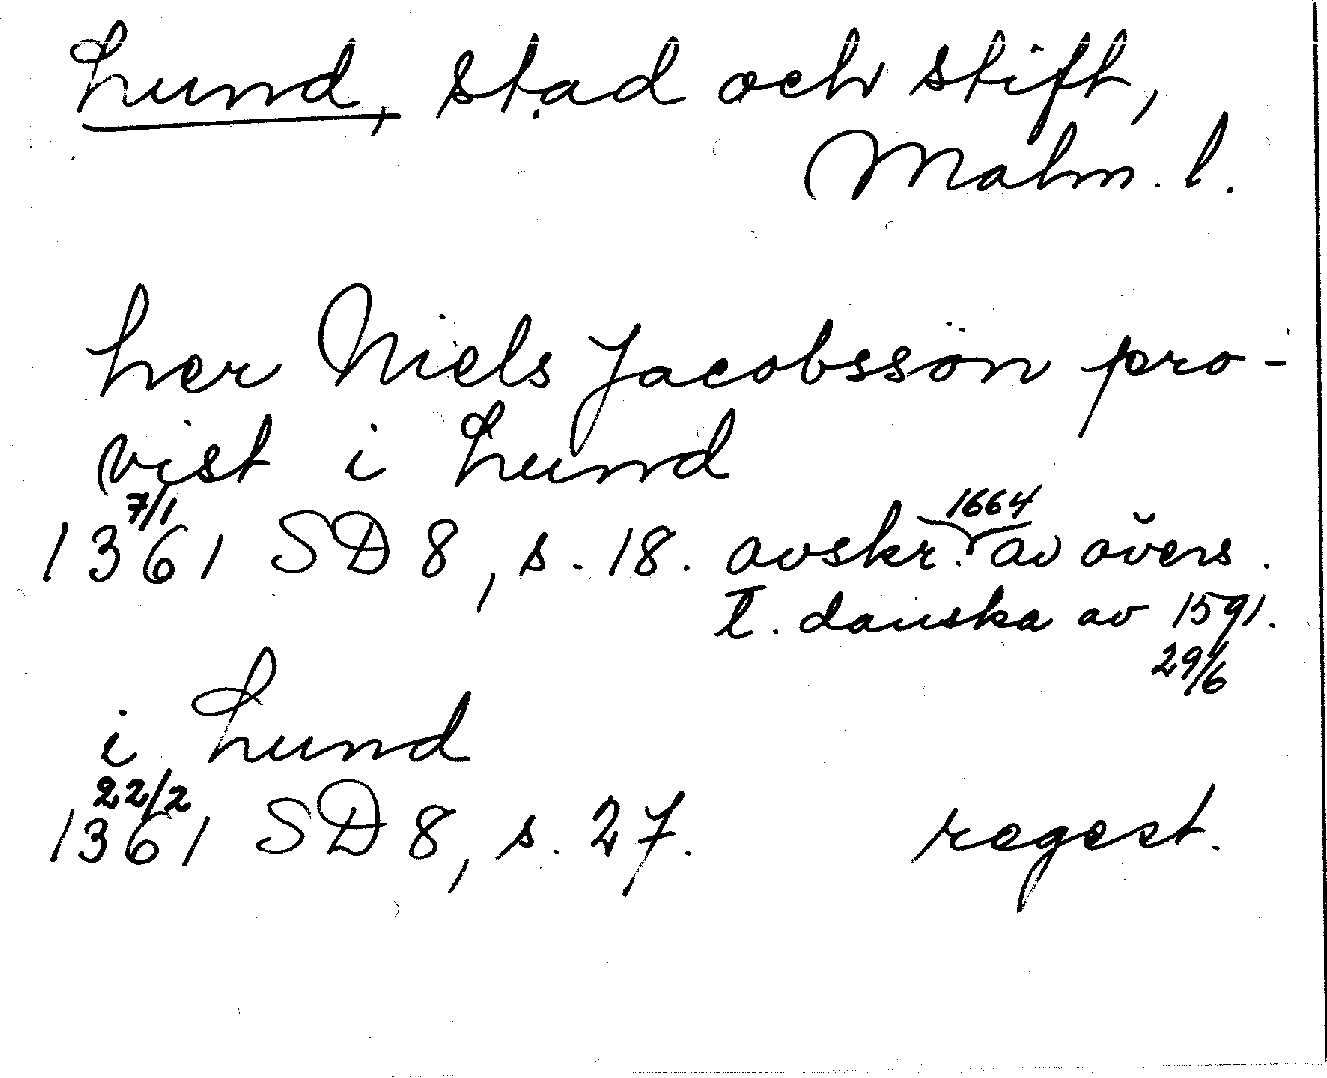 Lund, stad och stift,
Malm. l.
her Niels Jacobssön pro-
vist i Lund
7/1
1361 SD 8, s. 18. avskr. 1664 av övers.
t. danska av 1591.
29/6
i Lund
22/2
1361 SD 8, s. 27. regest.